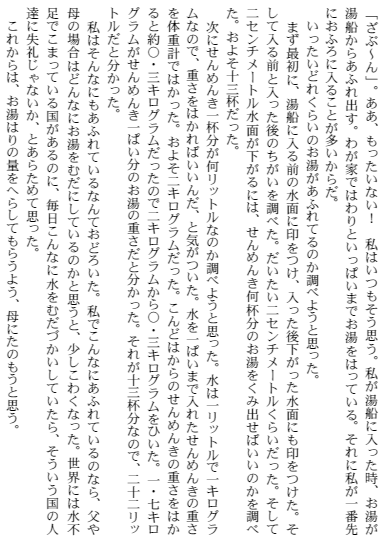 「ざぶ〜ん」。ああ、もったいない！　私はいつもそう思う。私が湯船に入った時、お湯が
湯船からあふれ出す。わが家ではわりといっぱいまでお湯をはっている。それに私が一番先
におふろに入ることが多いからだ。
いったいどれくらいのお湯があふれてるのか調べようと思った。
まず最初に、湯船に入る前の水面に印をつけ、入った後下がった水面にも印をつけた。そ
して入る前と入った後のちがいを調べた。だいたい二センチメートルくらいだった。そして
二センチメートル水面が下がるには、せんめんき何杯分のお湯をくみ出せばいいのかを調べ
た。およそ十三杯だった。
次にせんめんき一杯分が何リットルなのか調べようと思った。水は一リットルで一キログラ
ムなので、重さをはかればいいんだ、と気がついた。水を一ぱいまで入れたせんめんきの重さ
を体重計ではかった。およそ二キログラムだった。こんどはからのせんめんきの重さをはか
ると約〇・三キログラムだったので二キログラムから〇・三キログラムをひいた。一・七キロ
グラムがせんめんき一ぱい分のお湯の重さだと分かった。それが十三杯分なので、二十二リッ
トルだと分かった。
私はそんなにもあふれているなんておどろいた。私でこんなにあふれているのなら、父や
母の場合はどんなにお湯をむだにしているのかと思うと、少しこわくなった。世界には水不
足でこまっている国があるのに、毎日こんなに水をむだづかいしていたら、そういう国の人
達に失礼じゃないか、とあらためて思った。
これからは、お湯はりの量をへらしてもらうよう、母にたのもうと思う。